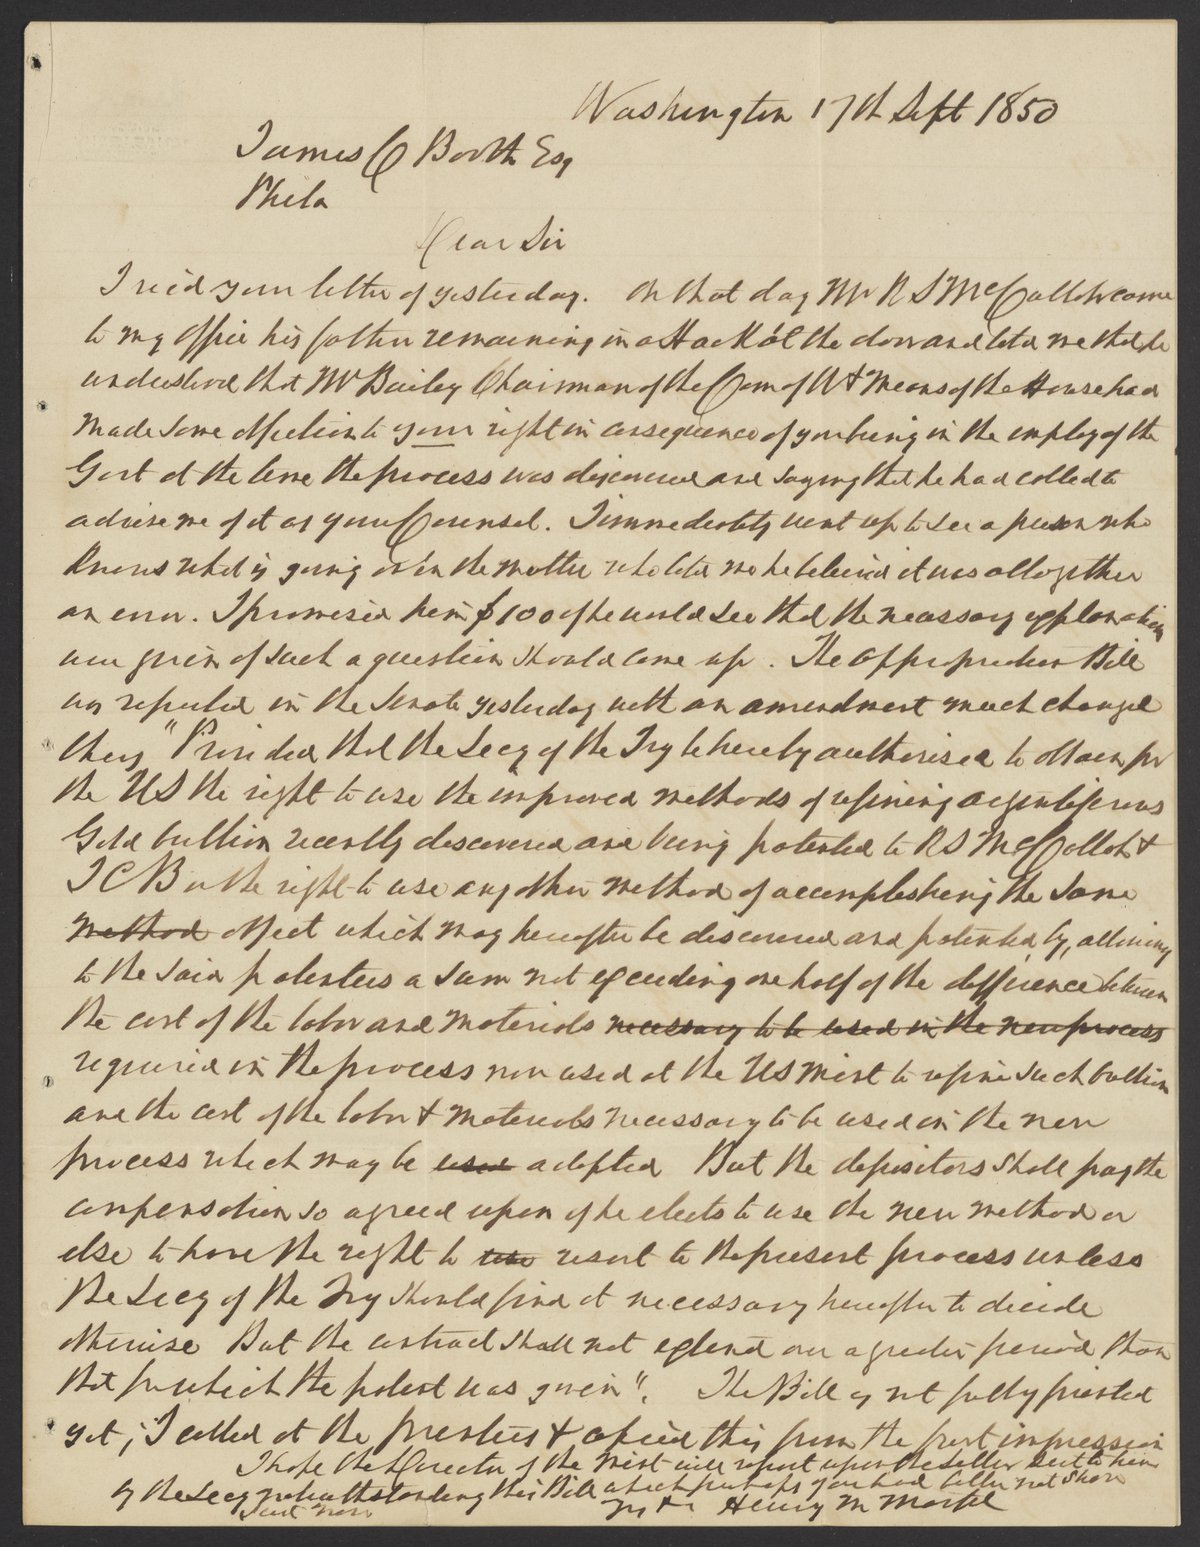 Washington 17th Sept 1850
James C Booth Esq
Phila
Dear Sir
I recd your letter of yesterday. On that day Mr R S McCulloh came
to my office his father remaining in a Hack at the door and told me that he
understood that Mr Bailey Chairman of the Com of W & Means of the House had
made some objection to your right in consequence of your being in the employ of the
Govt at the time the process was discovered and saying that he had called to
advise me of it as your Counsel. I immediately went up to see a person who
knows what is going on in the matter who told me he believed it was altogether
an error. I promised him $100 if he would see that the necessary explanations
were given if such a question should come up. The appropriation Bill
was reported in the Senate yesterday with an amendment much changed
thus "Provided that the Secy of the Try be hereby authorised to obtain for
the US the right to use the improved methods of refining argentiferous
Gold bullion recently discovered and being patented to R S McCulloh &
J C B or the right to use any other method of accomplishing the same
method object which may hereafter be discovered and patented by, allowing
to the said patentees a sum not exceeding one half of the difference between
the cost of the labor and materials necessary to be used in the new process
required in the process now used at the US Mint to refine such bullion
and the cost of the labor & materials necessary to be used in the new
process which may be used adopted But the depositors shall pay the
compensation so agreed upon if he elects to use the new method or
else to have the right to use resort to the present process unless
the Secy of the Try should find it necessary hereafter to decide
otherwise But the contract shall not extend over a greater period than
that for which the patent was given". The Bill is not fully printed
yet; I called at the printers & copied this from the first impression
I hope the Director of the Mint will report upon the letter sent to him
by the Secy notwithstanding this Bill which perhaps you had better not show
just now
Henry M Morfit